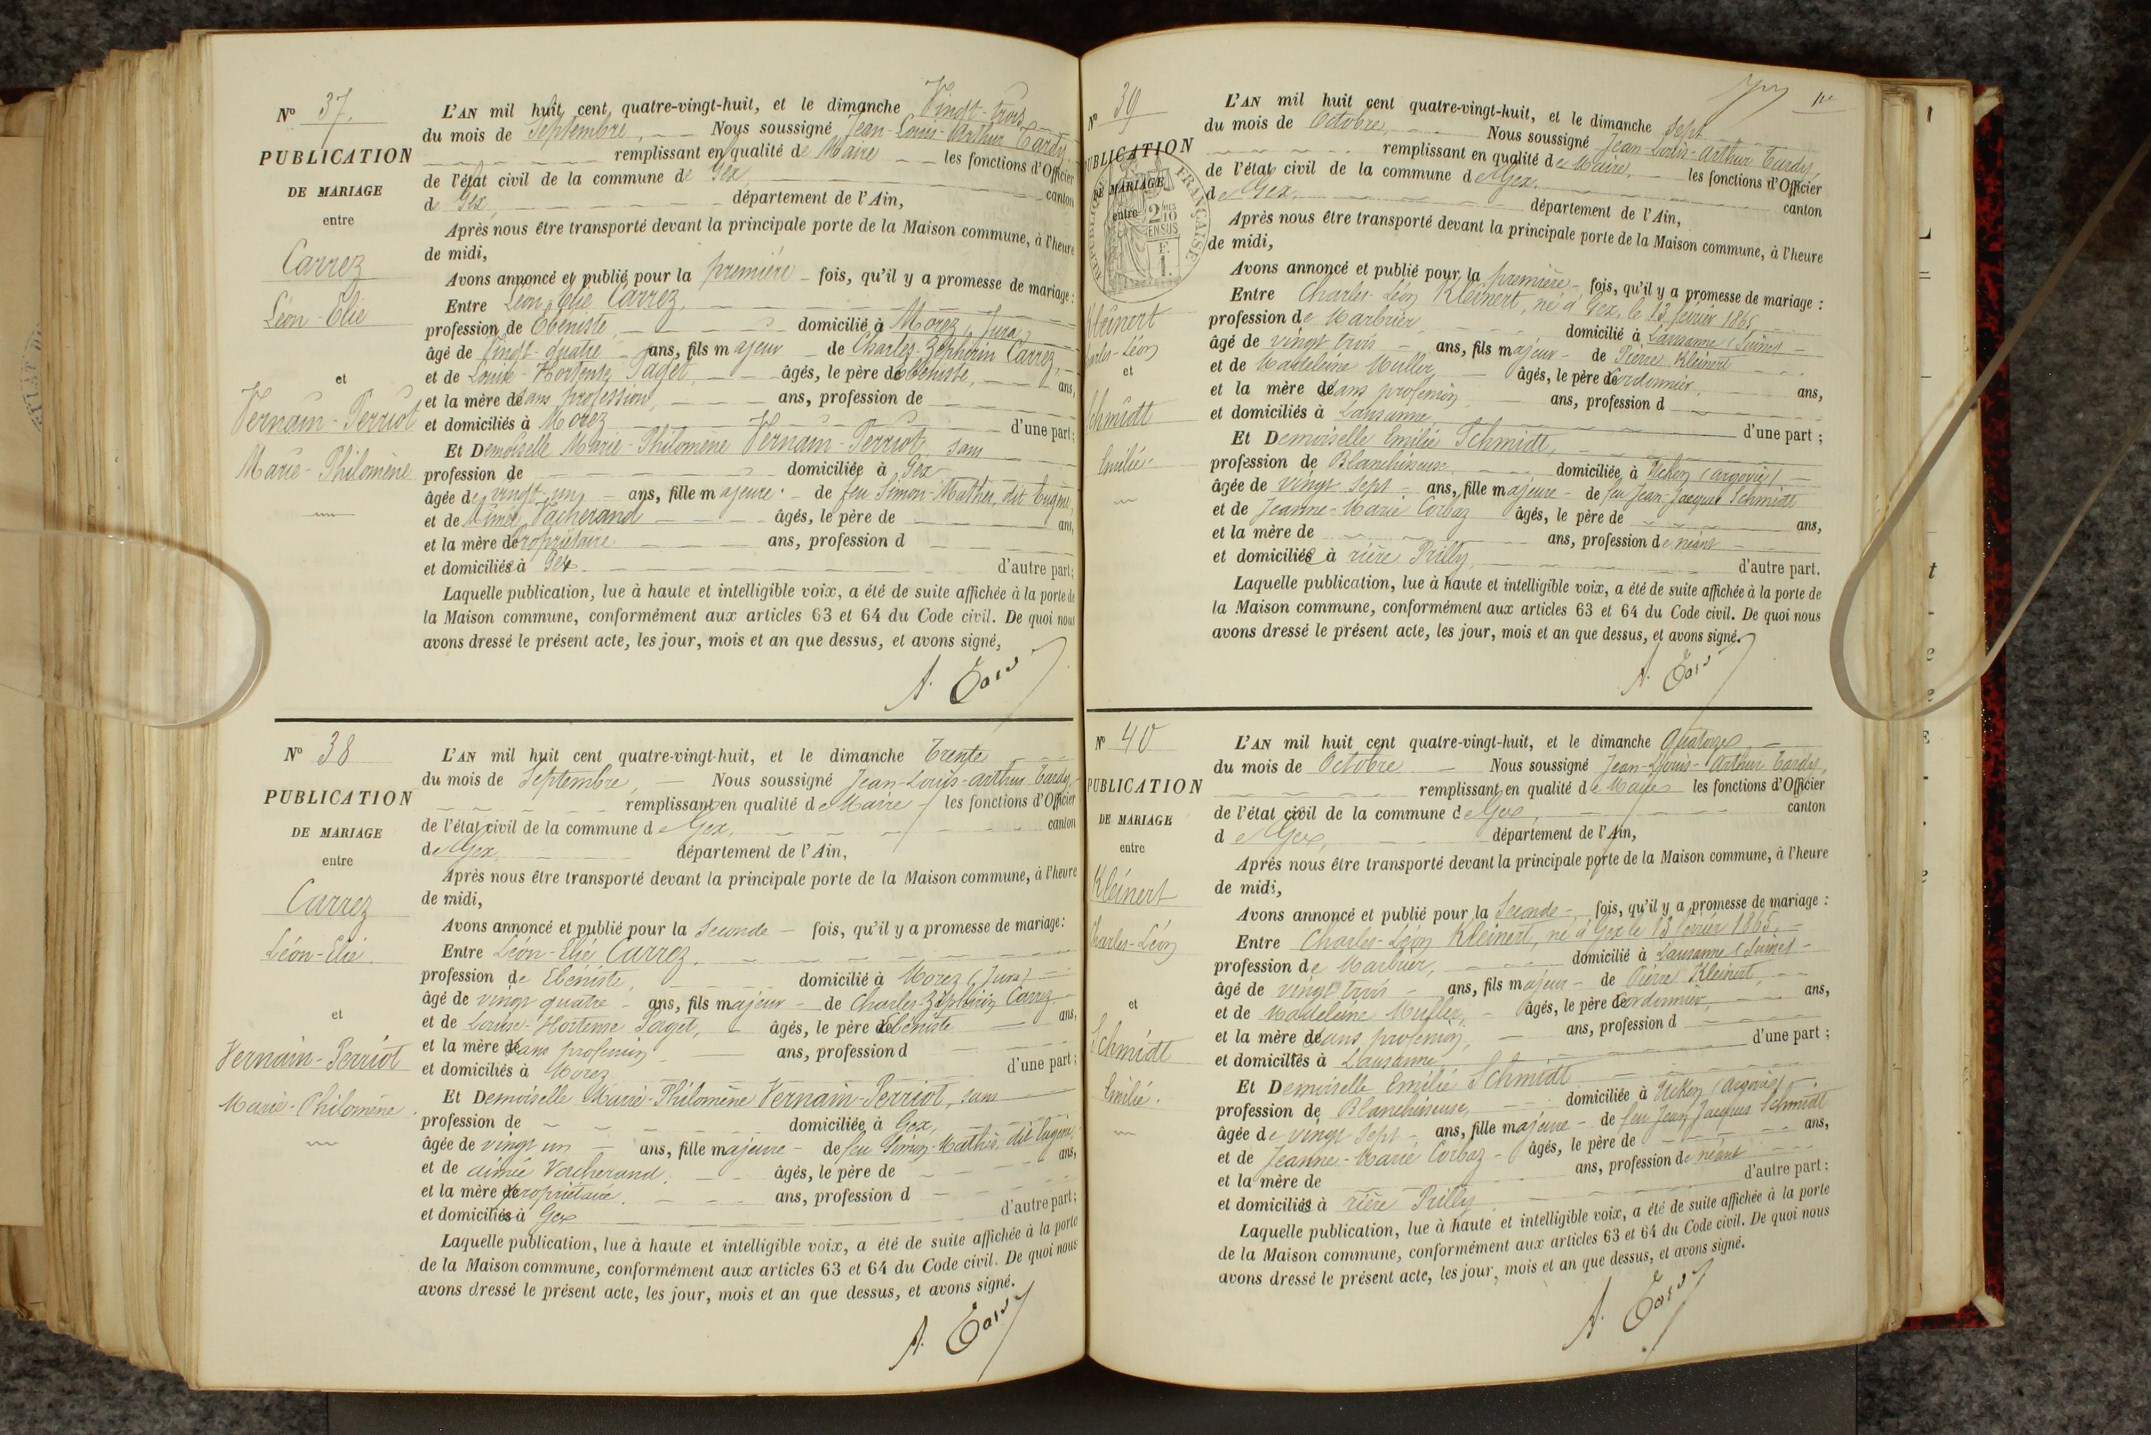 N° 37.
PUBLICATION
DE MARIAGE
entre
Carrez
Léon-Elie
et
Vernain-Perriot
Marie-Philomène
L'AN mil huit cent quatre-vingt-huit, et le dimanche Vingt-trois
du mois de Septembre, Nous soussigné Jean-Louis-Arthur Tardy,
remplissant en qualité de Maire les fonctions d'Officier
de l'état civil de la commune de Gex, canton
de Gex, département de l'Ain,
Après nous être transporté devant la principale porte de la Maison commune, à l'heure
de midi,
Avons annoncé et publié pour la première fois, qu'il y a promesse de mariage :
Entre Léon-Elie Carrez,
profession de Ebéniste, domicilié à Morez, Jura,
âgé de Vingt-quatre ans, fils majeur de Charles-Zéphirin Carrez,
et de Louise-Hortense Paget, âgés, le père de Ebéniste, ans,
et la mère de sans profession, ans, profession de
et domiciliés à Morez d'une part;
Et Demoiselle Marie-Philomène Vernain-Perriot, sans
profession de domiciliée à Gex
âgée de vingt-un ans, fille majeure de feu Simon-Mathieu, dit Eugène,
et de Aimée Vacherand âgés, le père de ans,
et la mère de Propriétaire ans, profession d
et domiciliés à Gex d'autre part;
Laquelle publication, lue à haute et intelligible voix, a été de suite affichée à la porte de
la Maison commune, conformément aux articles 63 et 64 du Code civil. De quoi nous
avons dressé le présent acte, les jour, mois et an que dessus, et avons signé,
A. Tardy
N° 38
PUBLICATION
DE MARIAGE
entre
Carrez
Léon-Elie.
et
Vernain-Perriot
Marie-Philomène.
L'AN mil huit cent quatre-vingt-huit, et le dimanche Trente
du mois de Septembre, Nous soussigné Jean-Louis-Arthur Tardy,
remplissant en qualité de Maire les fonctions d'Officier
de l'état civil de la commune de Gex, canton
de Gex, département de l'Ain,
Après nous être transporté devant la principale porte de la Maison commune, à l'heure
de midi,
Avons annoncé et publié pour la Seconde fois, qu'il y a promesse de mariage:
Entre Léon-Elie Carrez,
profession de Ebéniste, domicilié à Morez (Jura)
âgé de vingt quatre ans, fils majeur de Charles-Zéphirin Carrez
et de Louise-Hortense Paget, âgés, le père de Ebéniste ans,
et la mère de sans profession ans, profession d
et domiciliés à Morez d'une part ;
Et Demoiselle Marie-Philomène Vernain-Perriot, sans
profession de domiciliée à Gex,
âgée de vingt un ans, fille majeure de feu Simon-Mathieu, dit Eugène,
et de Aimée Vacherand, âgés, le père de ans,
et la mère de propriétaire. ans, profession d
et domiciliés à Gex d'autre part;
Laquelle publication, lue à haute et intelligible voix, a été de suite affichée à la porte
de la Maison commune, conformément aux articles 63 et 64 du Code civil. De quoi nous
avons dressé le présent acte, les jour, mois et an que dessus, et avons signé.
A. Tardy
N° 39
PUBLICATION
DE MARIAGE
entre
RÉPUBLIQUE FRANÇAISE
2/10 EN SUS
F. 1.
Kleinert
Charles-Léon
et
Schmidt
Emilie.
L'AN mil huit cent quatre-vingt-huit, et le dimanche Sept
du mois de Octobre, Nous soussigné Jean-Louis-Arthur Tardy,
remplissant en qualité de Maire, les fonctions d'Officier
de l'état civil de la commune de Gex, canton
de Gex, département de l'Ain,
Après nous être transporté devant la principale porte de la Maison commune, à l'heure
de midi,
Avons annoncé et publié pour la première fois, qu'il y a promesse de mariage :
Entre Charles-Léon Kleinert, né à Gex, le 13 février 1865
profession de Marbrier, domicilié à Lausanne (Suisse)
âgé de vingt trois ans, fils majeur de Pierre Kleinert
et de Madeleine Muller, âgés, le père de Cordonnier, ans,
et la mère de sans profession ans, profession d
et domiciliés à Lausanne d'une part ;
Et Demoiselle Emilie Schmidt,
profession de Blanchisseuse, domiciliée à (Argovie)
âgée de vingt sept ans, fille majeure de feu Jean-Jacques Schmidt
et de Jeanne-Marie Corbaz âgés, le père de ans,
et la mère de ans, profession de néant
et domiciliés à rière Prilly, d'autre part.
Laquelle publication, lue à haute et intelligible voix, a été de suite affichée à la porte de
la Maison commune, conformément aux articles 63 et 64 du Code civil. De quoi nous
avons dressé le présent acte, les jour, mois et an que dessus, et avons signé.
A. Tardy
N° 40
PUBLICATION
DE MARIAGE
entre
Kleinert
Charles-Léon
et
Schmidt
Emilie.
L'AN mil huit cent quatre-vingt-huit, et le dimanche Quatorze
du mois de Octobre Nous soussigné Jean-Louis-Arthur Tardy,
remplissant en qualité de Maire les fonctions d'Officier
de l'état civil de la commune de Gex, canton
de Gex, département de l'Ain,
Après nous être transporté devant la principale porte de la Maison commune, à l'heure
de midi,
Avons annoncé et publié pour la Seconde fois, qu'il y a promesse de mariage :
Entre Charles-Léon Kleinert, né à Gex le 13 février 1865,
profession de Marbrier, domicilié à Lausanne (Suisse)
âgé de vingt trois ans, fils majeur de Pierre Kleinert,
et de Madeleine Muller, âgés, le père de Cordonnier, ans,
et la mère de sans profession, ans, profession d
et domiciliés à Lausanne d'une part ;
Et Demoiselle Emilie Schmidt
profession de Blanchisseuse, domiciliée à (Argovie)
âgée de vingt sept ans, fille majeure de feu Jean Jacques Schmidt
et de Jeanne-Marie Corbaz âgés, le père de ans,
et la mère de ans, profession de néant
et domiciliés à rière Prilly d'autre part :
Laquelle publication, lue à haute et intelligible voix, a été de suite affichée à la porte
de la Maison commune, conformément aux articles 63 et 64 du Code civil. De quoi nous
avons dressé le présent acte, les jour, mois et an que dessus, et avons signé.
A. Tardy